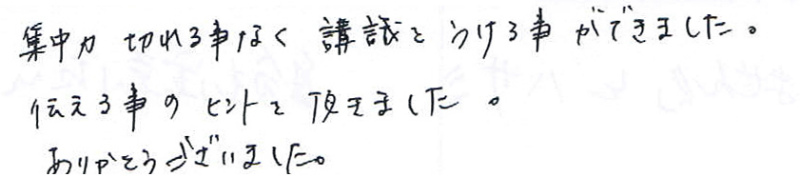 集中力 切れる事なく 講議を うける事 ができました。
伝える事の ヒントを 頂きました。
ありがとうございました。